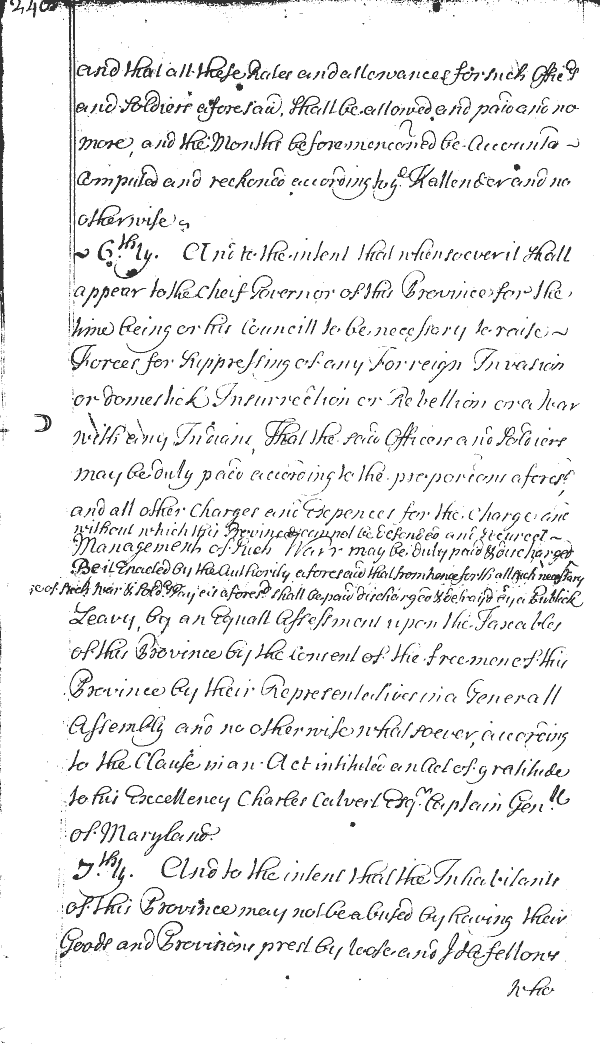 240
and that all these Rates and allowances for such Offic.rs
and Soldiers aforesaid, shall be allowed and paid and no
more, and the Months before menconed be Accounta ~
Computed and reckoned according to ye Kallender and no
otherwise
~ 6.thly. And to the intent that whensoever it shall
appear to the Cheif Governor of this Province for the
time being or his Councill to be necessary to raise ~
Forces for Suppressing of any Forreign Invasion
or domestick Insurrection or Rebellion or a War
with any Indians, That the said Officers and Soldiers
may be duly paid according to the proporcons aforesd,
and all other Charges and Expences for the Charge and
without which this Province cannot be defended and secured ~
Management of such Warr may be duly paid & discharged
Be it Enacted by the Authority aforesaid that from henceforth all such necessary
of such War & Sold.rs Pay as aforesd. shall be paid discharged & defrayed by a Publick
Leavy, by an Equall Assessment upon the Taxables
of this Province by the Consent of the freemen of this
Province by their Representatives in a Generall
Assembly and no otherwise whatsoever, according
to the Clause in an Act intituled an Act of gratitude
to his Excellency Charles Calvert Esqr. Captain Genll
of Maryland.
7.thly. And to the intent that the Inhabitants
of this Province may not be abused by having their
Goods and Provisions prest by loose and Idle fellows
who